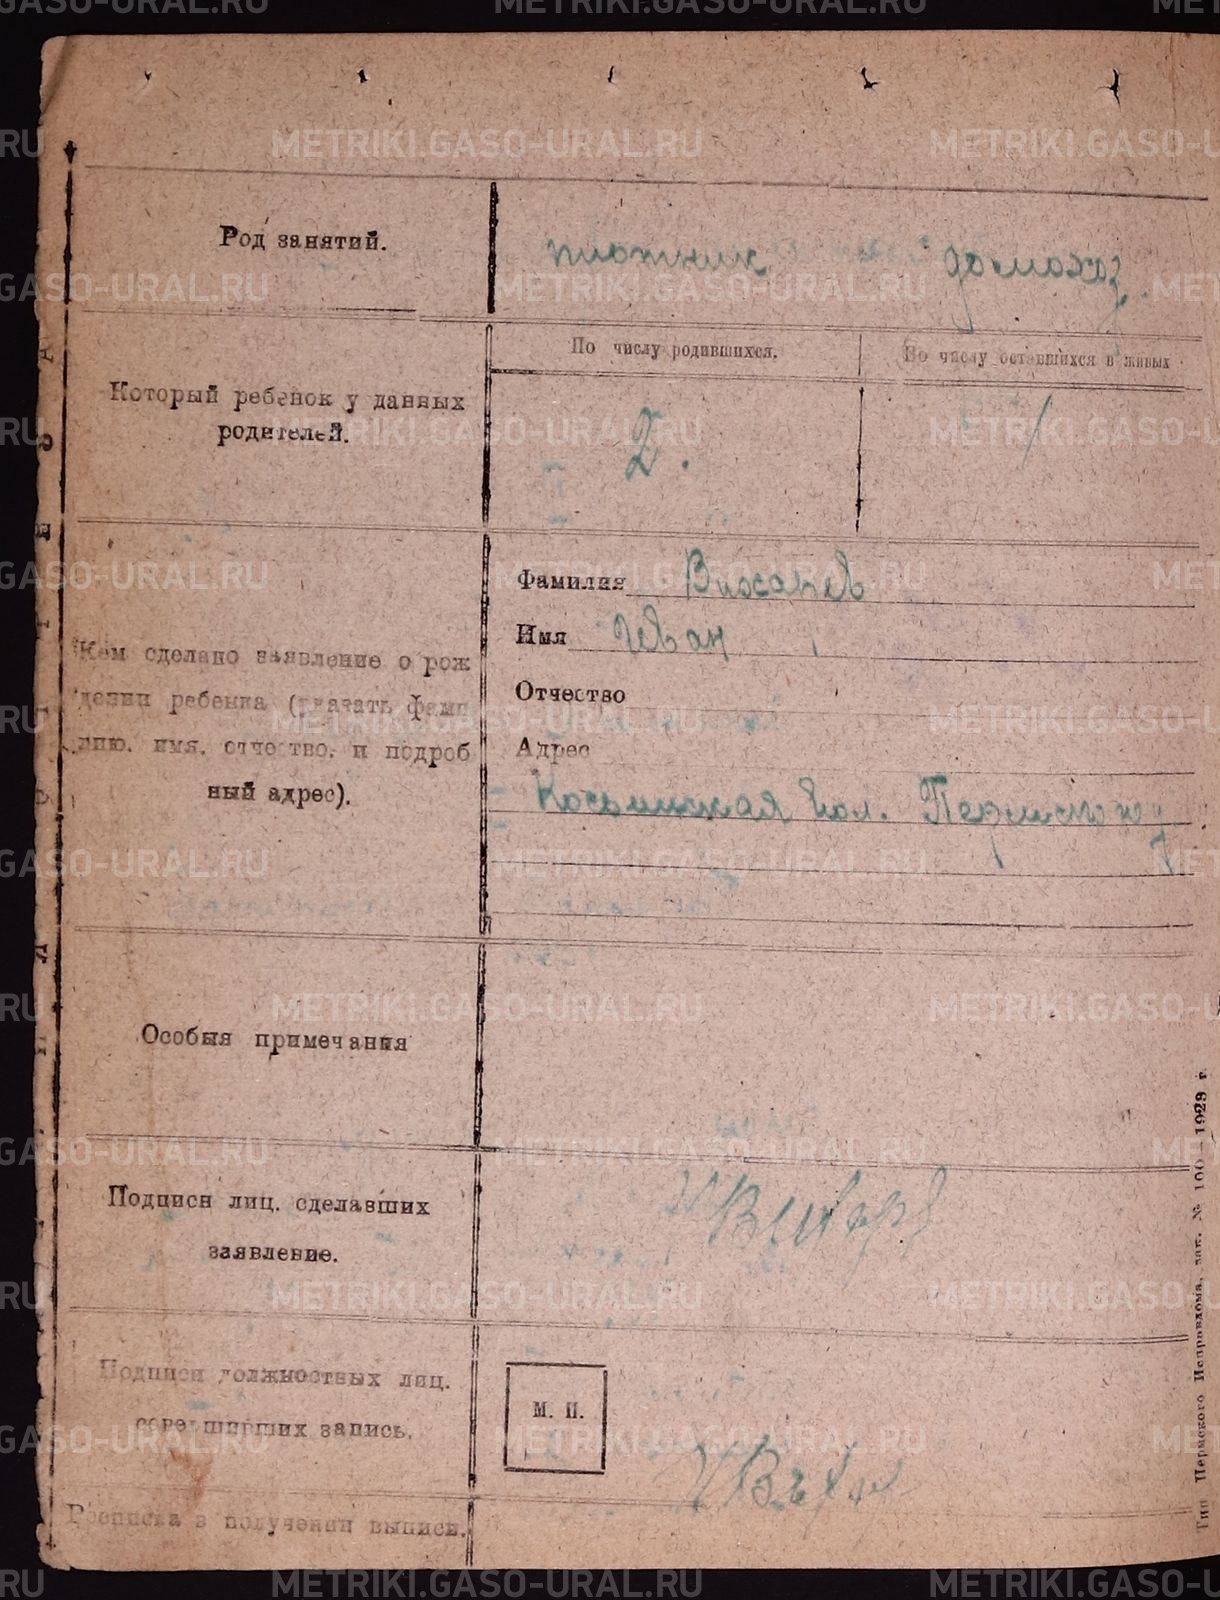 METRIKI.GASO-URAL.RU
Род занятий.
плотник домохоз.
Который ребенок у данных
родителей.
По числу родившихся.
По числу оставшихся в живых
2.
1
Кем сделано заявление о рож
дении ребенка (указать фами
лию, имя, отчество, и подроб
ный адрес).
Фамилия
Имя Иван
Отчество
Адрес
вол. Пермского
Особыя примечания
Подписи лиц, сделавших
заявление.
Подписи должностных лиц,
совершивших запись.
М. П.
Росписка в получении выписи.
Тип Пермского Исправдома, зак. № 100—1923 г.